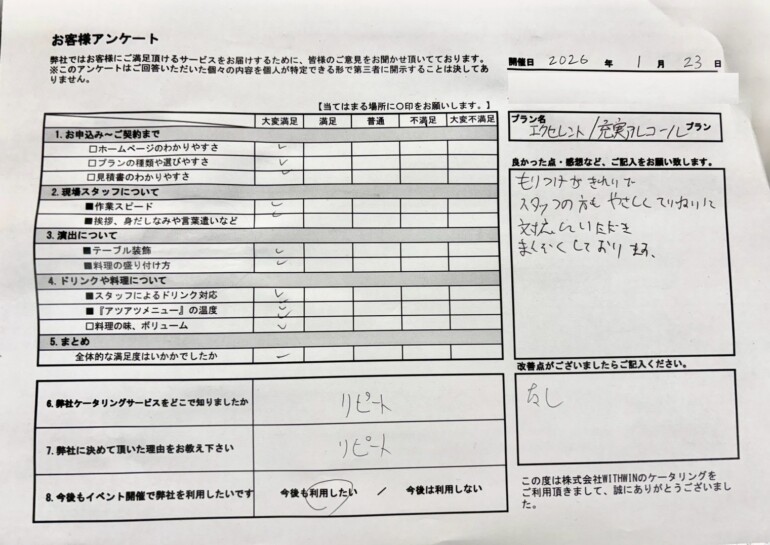 お客様アンケート
弊社ではお客様にご満足頂けるサービスをお届けするために、皆様のご意見をお聞かせ頂いております。
※このアンケートはご回答いただいた個々の内容を個人が特定できる形で第三者に開示することは決してあ
りません。
開催日 2026 年 1 月 23 日
【当てはまる場所に〇印をお願いします。】
大変満足 満足 普通 不満足 大変不満足
1. お申込み～ご契約まで
□ホームページのわかりやすさ ✓
□プランの種類や選びやすさ ✓
□見積書のわかりやすさ ✓
2. 現場スタッフについて
■作業スピード ✓
■挨拶、身だしなみや言葉遣いなど ✓
3. 演出について
■テーブル装飾 ✓
■料理の盛り付け方 ✓
4. ドリンクや料理について
■スタッフによるドリンク対応 ✓
■『アツアツメニュー』の温度 ✓
□料理の味、ボリューム ✓
5. まとめ
全体的な満足度はいかがでしたか ✓
6. 弊社ケータリングサービスをどこで知りましたか リピート
7. 弊社に決めて頂いた理由をお教え下さい リピート
8. 今後もイベント開催で弊社を利用したいです 今後も利用したい / 今後は利用しない
プラン名
エクセレント/充実アルコール プラン
良かった点・感想など、ご記入をお願い致します。
もりつけがきれいで
スタッフの方も やさしく ていねいに
対応していただき
まんぞくしております。
改善点がございましたらご記入ください。
なし
この度は株式会社WITHWINのケータリングを
ご利用頂きまして、誠にありがとうございまし
た。